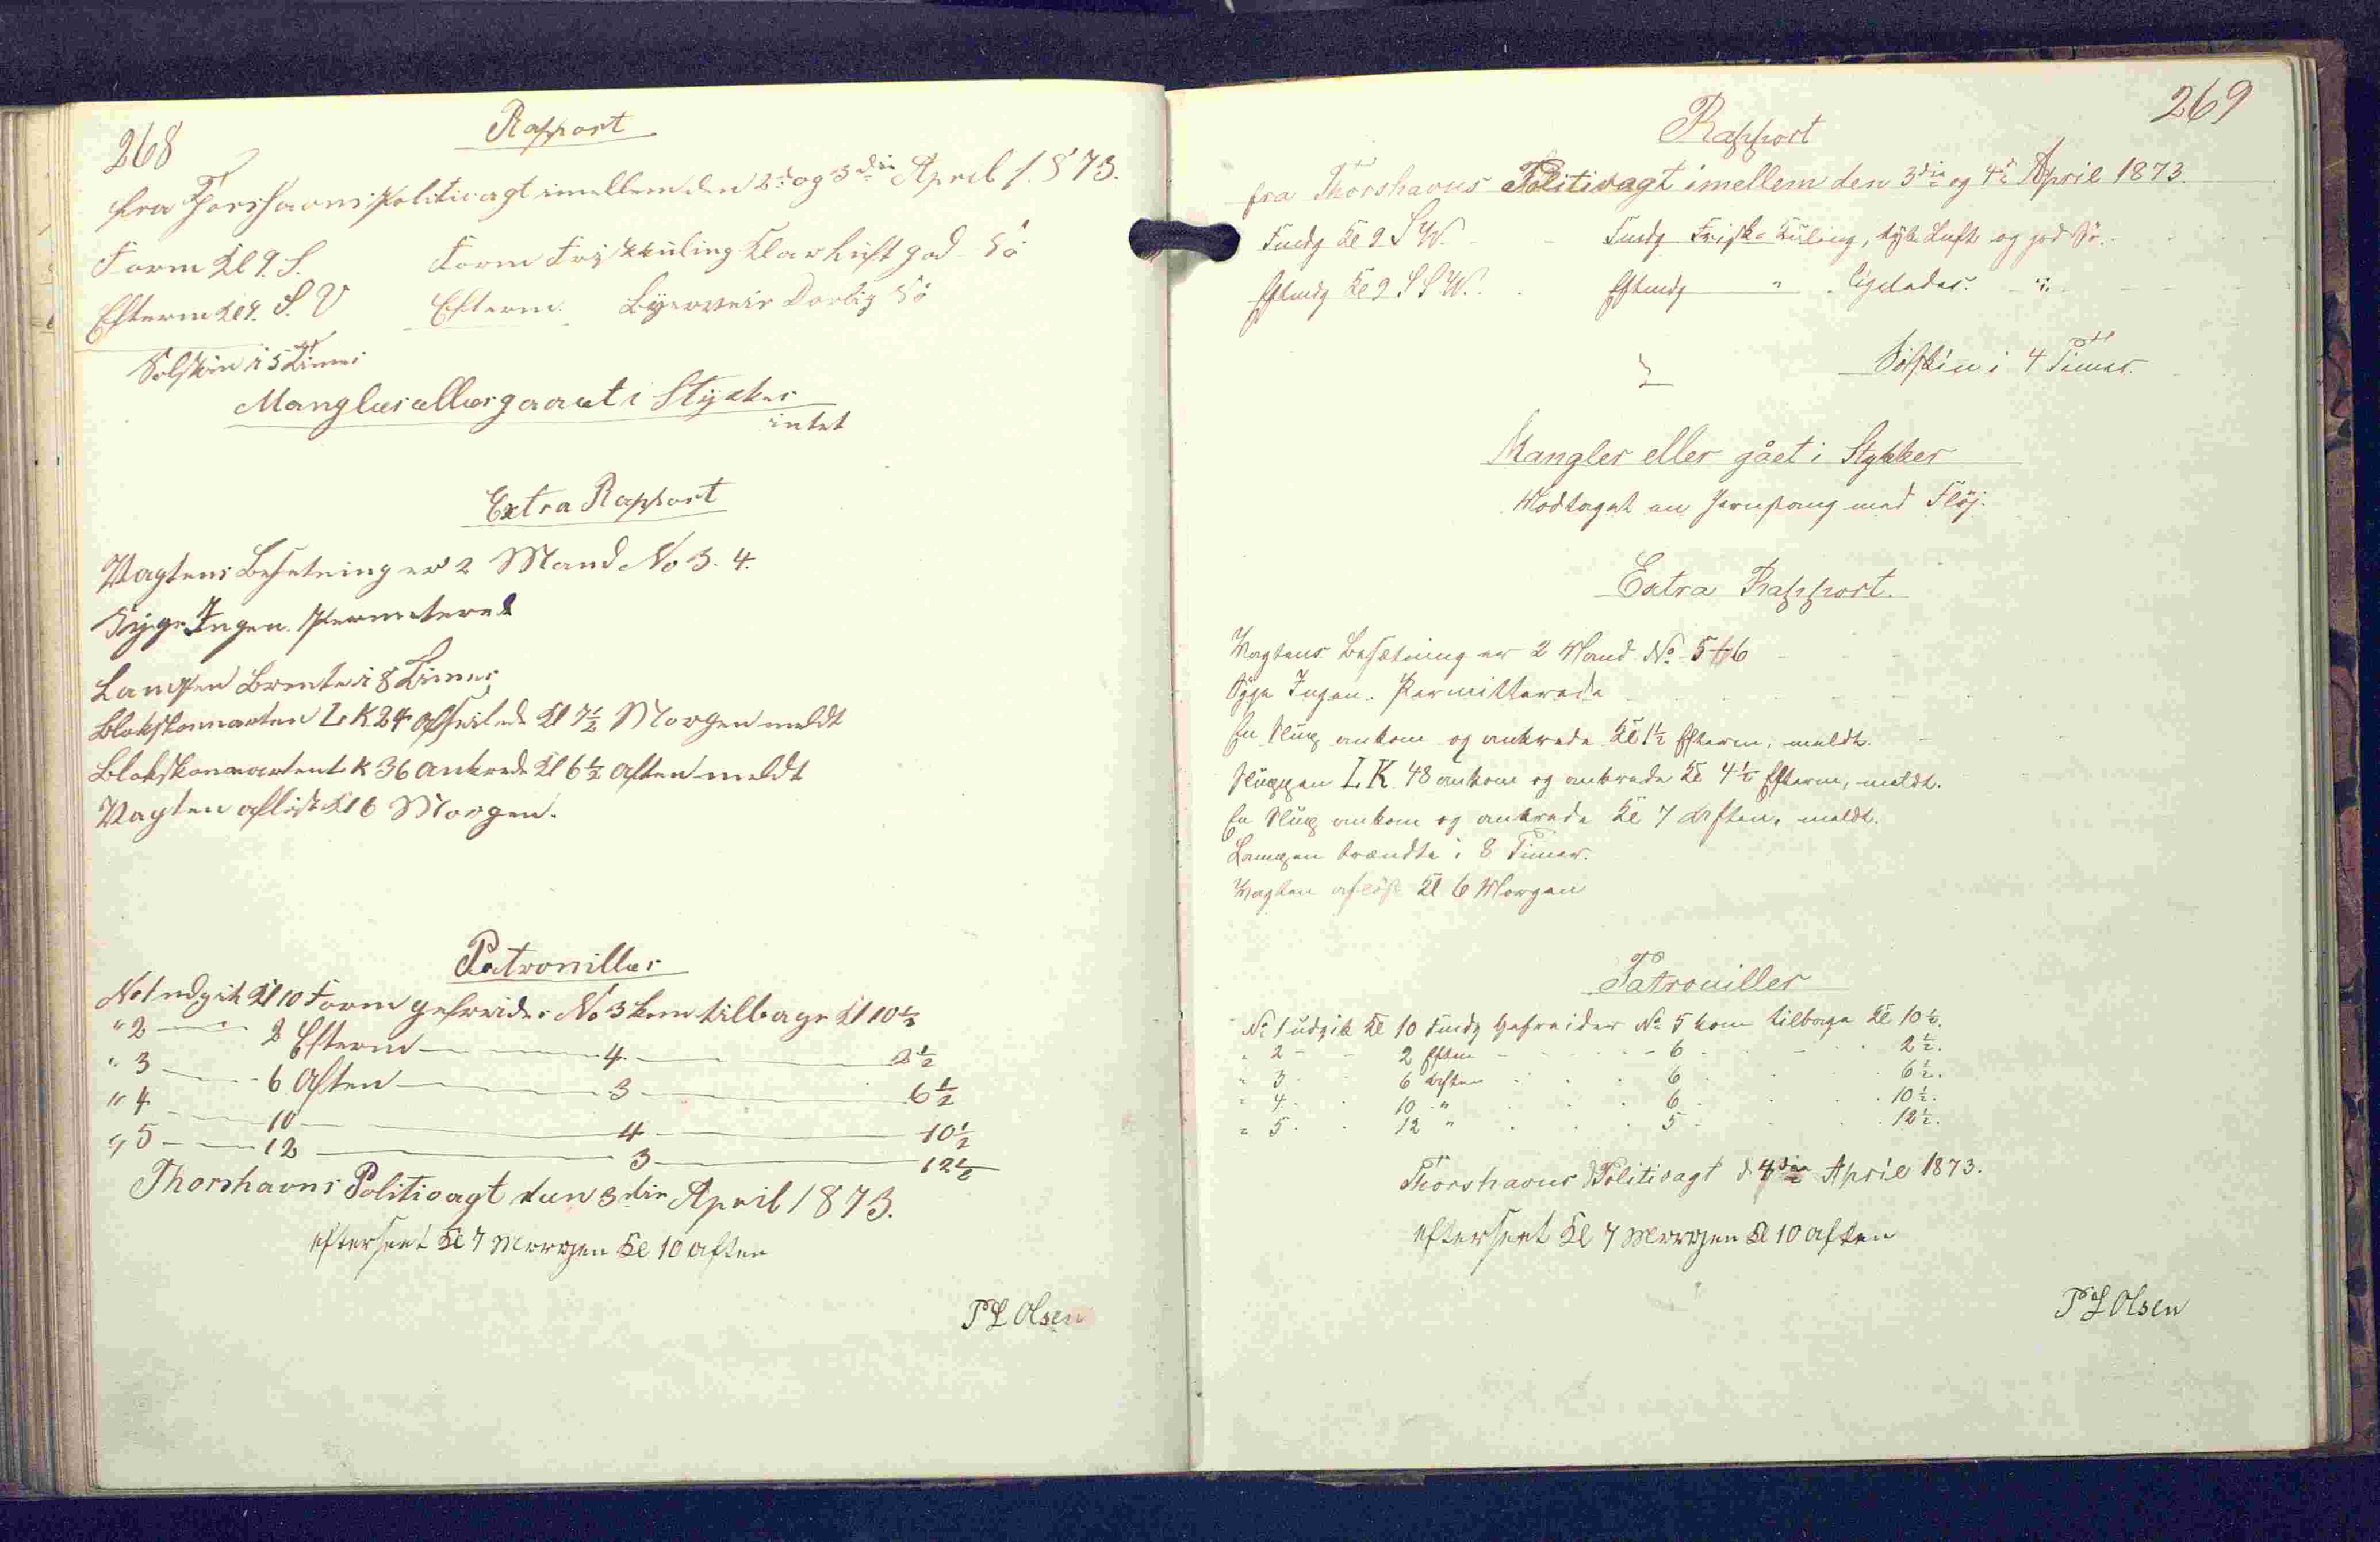 268
Rapport
fra Thorshavns Politivagt imellem den 2d og 3die April 1873.
Form Kl 9. S. Form Friskkuling Klar luft god Sö
Efterm Kl 9. S. V Efterm. Byerveir Dorlig Sö
Solskin i 5 Timer
Mangler eller gaaet i Stykker
intet
Extra Rapport
Vagtens Besetning er 2 Mand No 3. 4.
Syge Ingen. Permiterede
Lampen Brente i 8 Timer
Blokskonnarten L. K 24 afseilede Kl 7½ Morgen meldt
Blokskonnarten L K 36 ankrede Kl 6½ Aften meldt
Vagten aflöst Kl 6 Morgen.
Patrouiller
No 1 udgik Kl 10 Form gefreider No 3 kom tilbage Kl 10½
" 2 — 2 Efterm — 4 — 2½
" 3 — 6 Aften — 3 — 6½
" 4 — 10 — 4 — 10½
" 5 — 12 — 3 — 12½
Thorshavns Politivagt den 3die April 1873.
efterseet Kl 7 Morgen Kl 10 aften
P L Olsen
269
Rapport
fra Thorshavns Politivagt imellem den 3die og 4de April 1873.
Fmdg Kl 9 S W. Fmdg Frisk Kuling, tyk Luft og god Sö.
Eftmdg Kl 9 S S W. Eftmdg " ligeledes. "
Solskin i 4 Timer.
Mangler eller gået i Stykker
Modtaget en Jernstang med Flöj.
Extra Rapport.
Vagtens Besætning er 2 Mand No 5 + 6
Syge Ingen. Permitterede
En Slup ankom og ankrede Kl 1½ Efterm, meldt.
Sluppen L K 48 ankom og ankrede Kl 4½ Efterm, meldt.
En Slup ankom og ankrede Kl 7 Aften, meldt.
Lampen brændte i 8 Timer.
Vagten aflöst Kl 6 Morgen
Patrouiller
No 1 udgik Kl 10 Fmdg Gefreider No 5 kom tilbage Kl 10½.
" 2 - - 2 Eftm - - 6 - - 2½.
" 3 6 Aften 6 6½.
" 4 10 " 6 10½.
" 5 12 " 5 12½.
Thorshavns Politivagt d 4die April 1873.
efterseet Kl 7 Morgen Kl 10 aften
P L Olsen